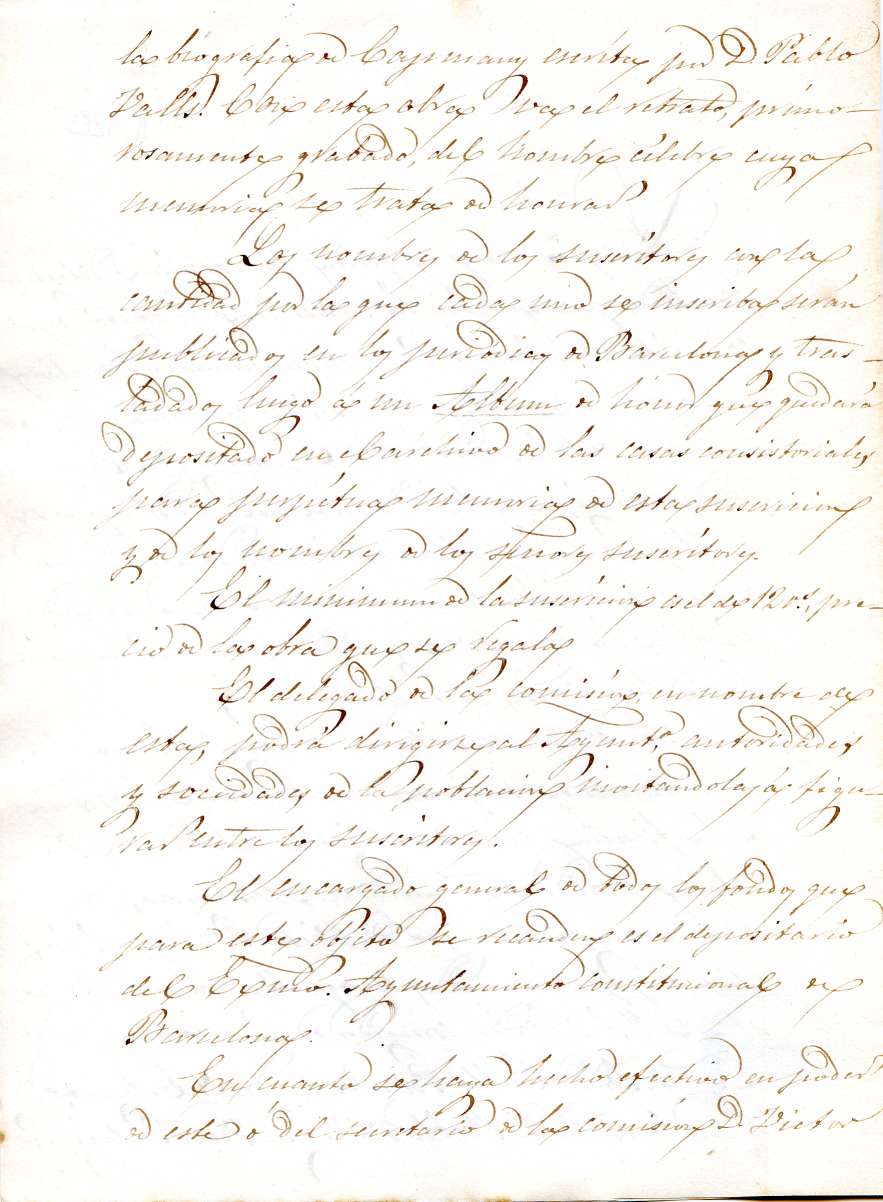 la biografia de Capmany escrita por D. Pablo
Valls. Con esta obra va el retrato, primo-
rosamente grabado, del hombre célebre cuya
memoria se trata de honrar
Los nombres de los suscritores con la
cantidad por la que cada uno se inscriba serán
publicados en los periódicos de Barcelona y tras-
ladados luego a un Album de honor que quedará
depositado en el archivo de las casas consistoriales,
para perpétua memoria de esta suscricion
y de los nombres de los señores suscritores.
El minimum de la suscricion es el de 12 rs, pre-
cio de la obra que se regala
El delegado de la comision, en nombre de
esta, podrá dirigirse al Ayuntº, autoridades
y sociedades de la poblacion invitandolas á figu-
rar entre los suscritores.
El encargado general de todos los fondos que
para este objeto se recauden es el depositario
del Excmo. Ayuntamiento constitucional de
Barcelona.
En cuanto se haya hecho efectivo en poder
de este ó del secretario de la comision D. Victor